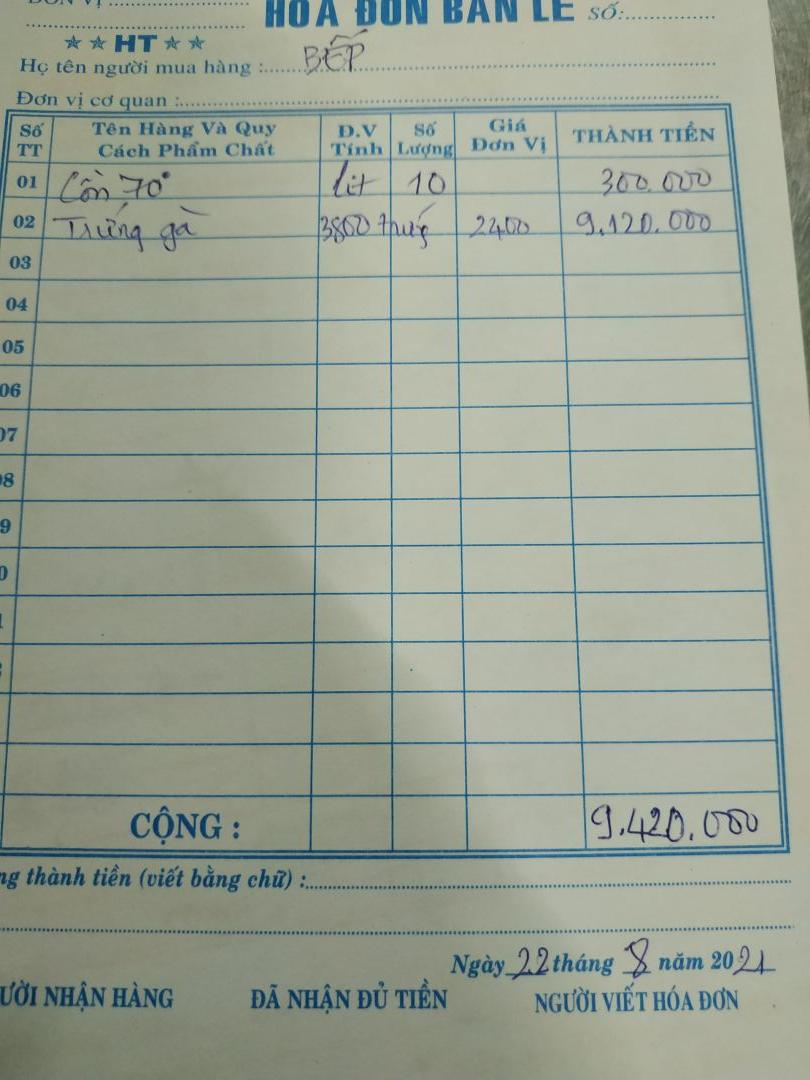 ĐƠN VỊ
HÓA ĐƠN BÁN LẺ SỐ:
★ ★ HT ★ ★
Họ tên người mua hàng : BẾP
Đơn vị cơ quan :
Số TT Tên Hàng Và Quy Cách Phẩm Chất Đ.V Tính Số Lượng Giá Đơn Vị THÀNH TIỀN
01 Cồn 70° lit 10 300.000
02 Trứng gà 3800 trứng 2400 9.120.000
03
04
05
06
07
08
9
0
CỘNG : 9.420.000
ng thành tiền (viết bằng chữ) :
Ngày 22 tháng 8 năm 2021
ƯỜI NHẬN HÀNG ĐÃ NHẬN ĐỦ TIỀN NGƯỜI VIẾT HÓA ĐƠN